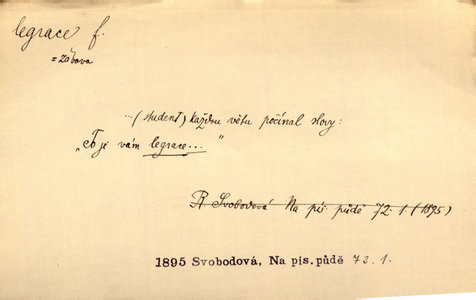 legrace f.
= zábava
...(student) každou větu počínal slovy:
„To je vám legrace..."
R. Svobodová Na pís. půdě 72. 1. (1895)
1895 Svobodová, Na pís.půdě 72.1.